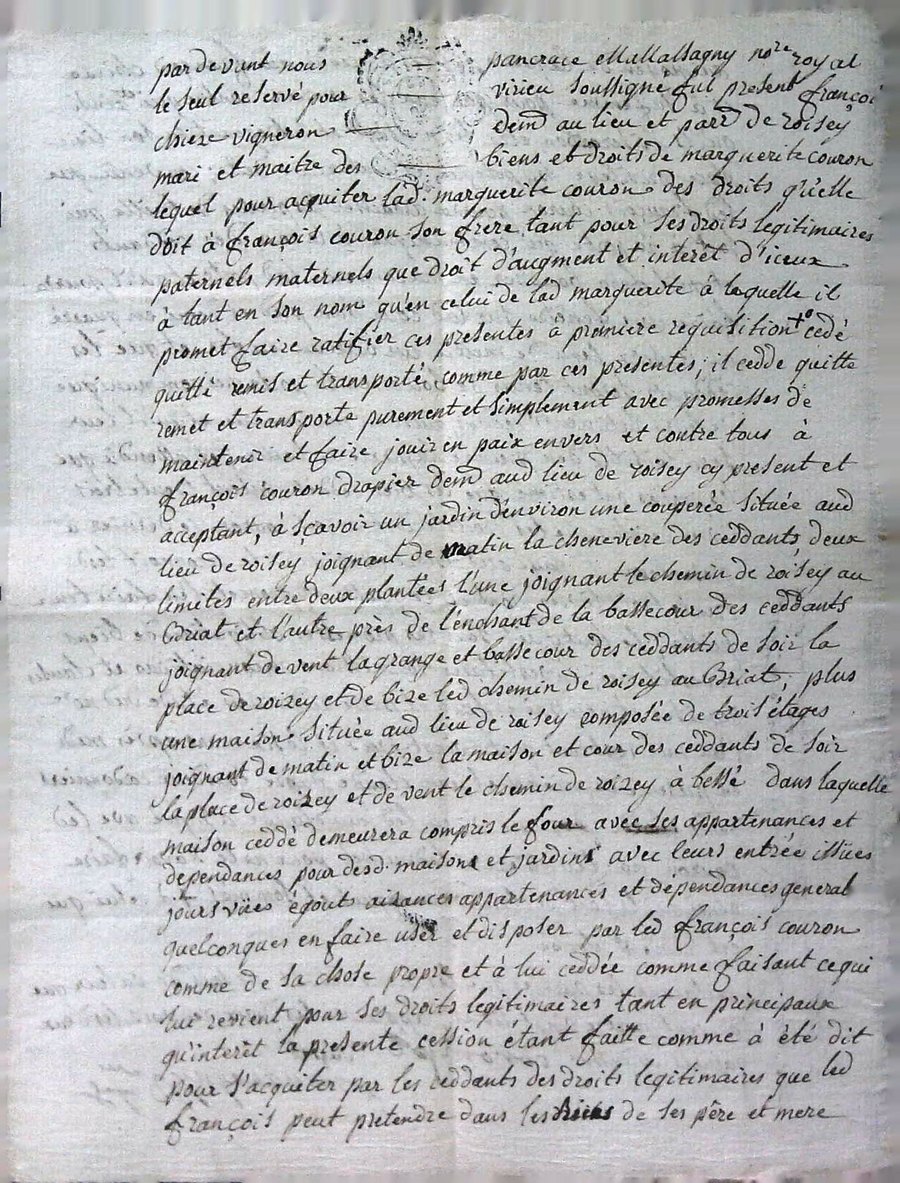 pardevant nous pancrace Mallassagny no.re royal
le seul reservé pour virieu soussigné fut present françoi
chieze vigneron dem.t au lieu et parr.e de roisey
mari et maitre des biens et droits de marguerite couron
lequel pour acquiter lad. marguerite couron des droits qu'elle
doit à françois couron son frere, tant pour ses droits legitimaires
paternels maternels que droit d'augment et interêt d'iceux
à tant en son nom qu'en celui de lad marguerite à laquelle il
promet faire ratifier ces presentes à première requisition + cedé
quitté remis et transporté, comme par ces presentes; il cedde quitte
remet et transporte purement et simplement avec promesses de
maintenir et faire jouir en paix envers et contre tous à
françois couron drapier dem.t aud lieu de roisey cy present et
acceptant, à sçavoir un jardin d'environ une couperée située aud
lieu de roisey joignant de matin la cheneviere des ceddants, deux
limites entre deux plantées l'une joignant le chemin de roisey au
Briat et l'autre près de l'enchant de la bassecour des ceddants
joignant de vent la grange et basse cour des ceddants de soir la
place de roizey et de bize led chemin de roisey au Briat, plus
une maison située aud lieu de roisey composée de trois étages
joignant de matin et bize la maison et cour des ceddants de soir
la place de roizey et de vent le chemin de roizey à bessé dans laquelle
maison ceddé demeurera compris le four avec ses appartenances et
dependances pour desd. maisons et jardins avec leurs entrée issües
jours vües égout aizances appartenances et dépendances general
quelconques en faire user et disposer par led françois couron
comme de sa chose propre et à lui ceddée comme faisant ce qui
lui revient pour ses droits legitimaires tant en principaux
qu'interêt la presente cession étant faitte comme à été dit
pour s'acquiter par les ceddants des droits legitimaires que led
françois peut pretendre dans les biens de ses père et mere